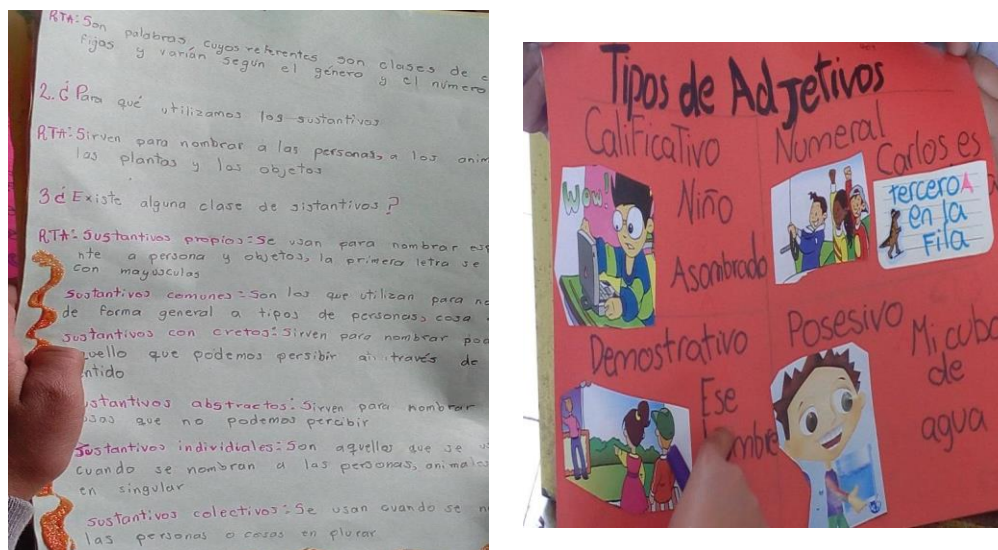 RTA: Son palabras cuyos referentes son clases de
fijas y varián según el género y el número
2. ¿Para qué utilizamos los sustantivos
RTA: Sirven para nombrar a las personas, a los anim
las plantas y los objetos
3 ¿Existe alguna clase de sistantivos?
RTA: Sustantivos propios: Se usan para nombrar esp
nte a persona y objetos, la primera letra se
con mayúsculas
Sustantivos comunes: Son los que utilizan para no
de forma general a tipos de personas, cosa
Sustantivos con cretos: Sirven para nombrar
quello que podemos persibir a través de
ntido
ustantivos abstractos: Sirven para nombrar
osas que no podemos percibir
Sustantivos individiales: Son aquellos que se us
cuando se nombran a las personas, animales
en singular
Sustantivos colectivos: Se usan cuando se n
las personas o cosas en plurar
Tipos de Adjetivos
Calificativo
Wow!
Niño
Asombrado
Numeral
Carlos es
tercero
en la
Fila
Demostrativo
Ese
mbre
Posesivo
Mi cubo
de
agua